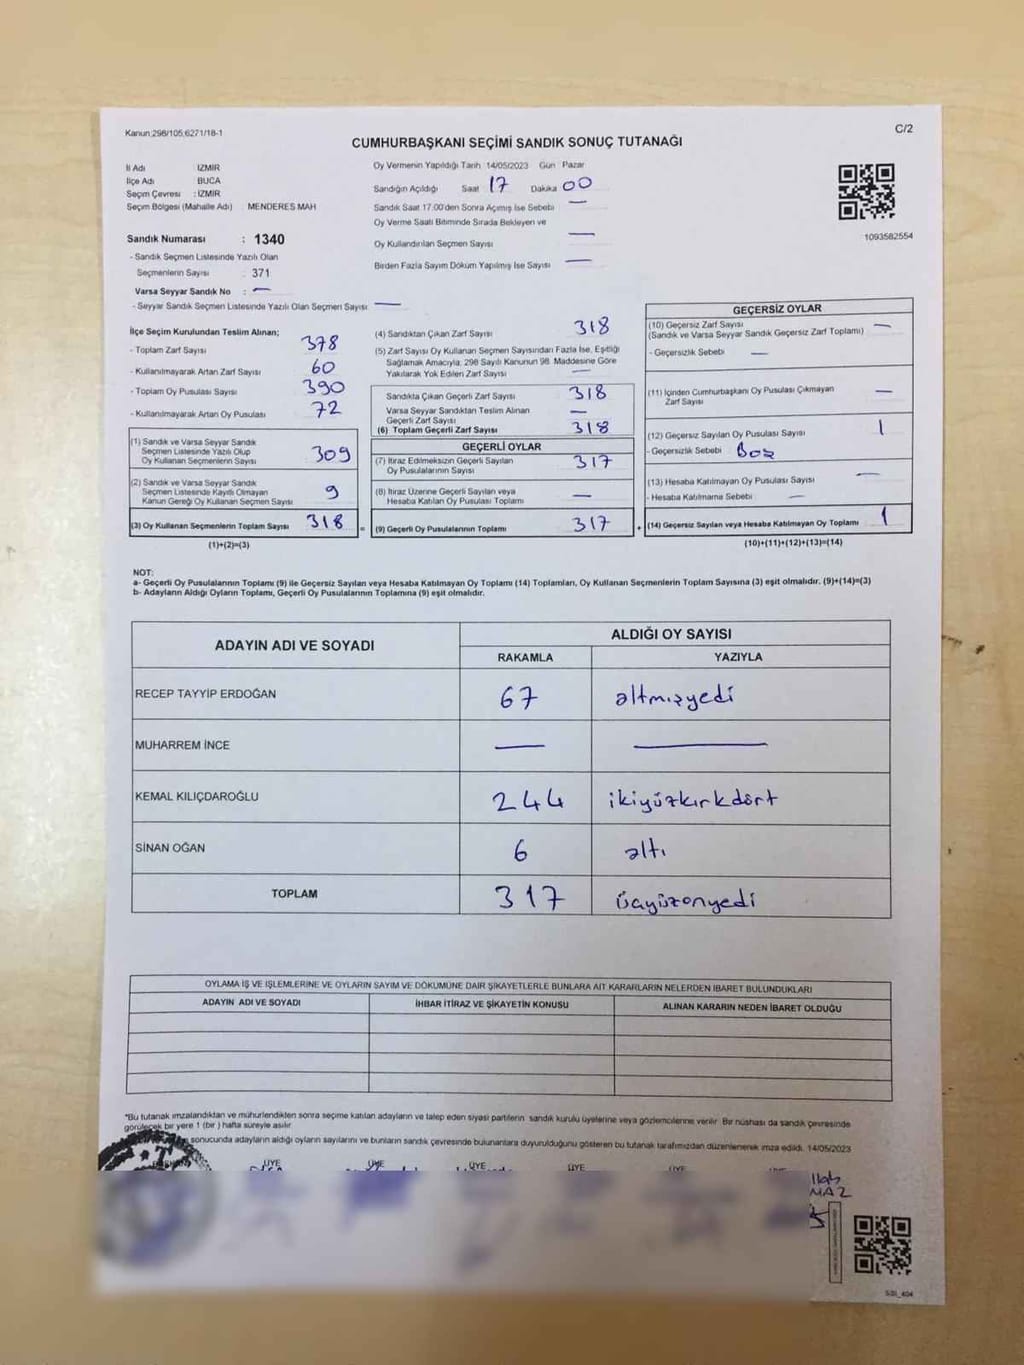 Kanun:298/105,6271/18-1
C/2
CUMHURBAŞKANI SEÇİMİ SANDIK SONUÇ TUTANAĞI
İl Adı İZMİR
İlçe Adı BUCA
Seçim Çevresi : İZMİR
Seçim Bölgesi (Mahalle Adı) MENDERES MAH
Sandık Numarası : 1340
- Sandık Seçmen Listesinde Yazılı Olan
Seçmenlerin Sayısı : 371
Varsa Seyyar Sandık No : —
- Seyyar Sandık Seçmen Listesinde Yazılı Olan Seçmen Sayısı: —
Oy Vermenin Yapıldığı Tarih 14/05/2023 Gün Pazar
Sandığın Açıldığı Saat 17 Dakika 00
Sandık Saat 17.00'den Sonra Açımış İse Sebebi —
Oy Verme Saati Bitiminde Sırada Bekleyen ve
Oy Kullandırılan Seçmen Sayısı —
Birden Fazla Sayım Döküm Yapılmış İse Sayısı —
1093582554
İlçe Seçim Kurulundan Teslim Alınan;
- Toplam Zarf Sayısı 378
- Kullanılmayarak Artan Zarf Sayısı 60
- Toplam Oy Pusulası Sayısı 390
- Kullanılmayarak Artan Oy Pusulası 72
(1) Sandık ve Varsa Seyyar Sandık
Seçmen Listesinde Yazılı Olup
Oy Kullanan Seçmenlerin Sayısı 309
(2) Sandık ve Varsa Seyyar Sandık
Seçmen Listesinde Kayıtlı Olmayan
Kanun Gereği Oy Kullanan Seçmen Sayısı 9
(3) Oy Kullanan Seçmenlerin Toplam Sayısı 318
(1)+(2)=(3)
(4) Sandıktan Çıkan Zarf Sayısı 318
(5) Zarf Sayısı Oy Kullanan Seçmen Sayısından Fazla İse, Eşitliği
Sağlamak Amacıyla; 298 Sayılı Kanunun 98. Maddesine Göre
Yakılarak Yok Edilen Zarf Sayısı —
Sandıkta Çıkan Geçerli Zarf Sayısı 318
Varsa Seyyar Sandıktan Teslim Alınan
Geçerli Zarf Sayısı —
(6) Toplam Geçerli Zarf Sayısı 318
GEÇERLİ OYLAR
(7) İtiraz Edilmeksizin Geçerli Sayılan
Oy Pusulalarının Sayısı 317
(8) İtiraz Üzerine Geçerli Sayılan veya
Hesaba Katılan Oy Pusulası Toplamı —
= (9) Geçerli Oy Pusulalarının Toplamı 317
GEÇERSİZ OYLAR
(10) Geçersiz Zarf Sayısı —
(Sandık ve Varsa Seyyar Sandık Geçersiz Zarf Toplamı)
- Geçersizlik Sebebi —
(11) İçinden Cumhurbaşkanı Oy Pusulası Çıkmayan
Zarf Sayısı —
(12) Geçersiz Sayılan Oy Pusulası Sayısı 1
- Geçersizlik Sebebi Boş
(13) Hesaba Katılmayan Oy Pusulası Sayısı —
- Hesaba Katılmama Sebebi —
+ (14) Geçersiz Sayılan veya Hesaba Katılmayan Oy Toplamı 1
(10)+(11)+(12)+(13)=(14)
NOT:
a- Geçerli Oy Pusulalarının Toplamı (9) ile Geçersiz Sayılan veya Hesaba Katılmayan Oy Toplamı (14) Toplamları, Oy Kullanan Seçmenlerin Toplam Sayısına (3) eşit olmalıdır. (9)+(14)=(3)
b- Adayların Aldığı Oyların Toplamı, Geçerli Oy Pusulalarının Toplamına (9) eşit olmalıdır.
ADAYIN ADI VE SOYADI ALDIĞI OY SAYISI
RAKAMLA YAZIYLA
RECEP TAYYİP ERDOĞAN 67 altmışyedi
MUHARREM İNCE — —
KEMAL KILIÇDAROĞLU 244 ikiyüzkırkdört
SİNAN OĞAN 6 altı
TOPLAM 317 üçyüzonyedi
OYLAMA İŞ VE İŞLEMLERİNE VE OYLARIN SAYIM VE DÖKÜMÜNE DAİR ŞİKAYETLERLE BUNLARA AİT KARARLARIN NELERDEN İBARET BULUNDUKLARI
ADAYIN ADI VE SOYADI İHBAR İTİRAZ VE ŞİKAYETİN KONUSU ALINAN KARARIN NEDEN İBARET OLDUĞU
*Bu tutanak imzalandıktan ve mühürlendikten sonra seçime katılan adayların ve talep eden siyasi partilerin sandık kurulu üyelerine veya gözlemcilerine verilir. Bir nüshası da sandık çevresinde
görülecek bir yere 1 (bir) hafta süreyle asılır.
sonucunda adayların aldığı oyların sayılarını ve bunların sandık çevresinde bulunanlara duyurulduğunu gösteren bu tutanak tarafımızdan düzenlenerek imza edildi. 14/05/2023
ÜYE ÜYE ÜYE ÜYE ÜYE